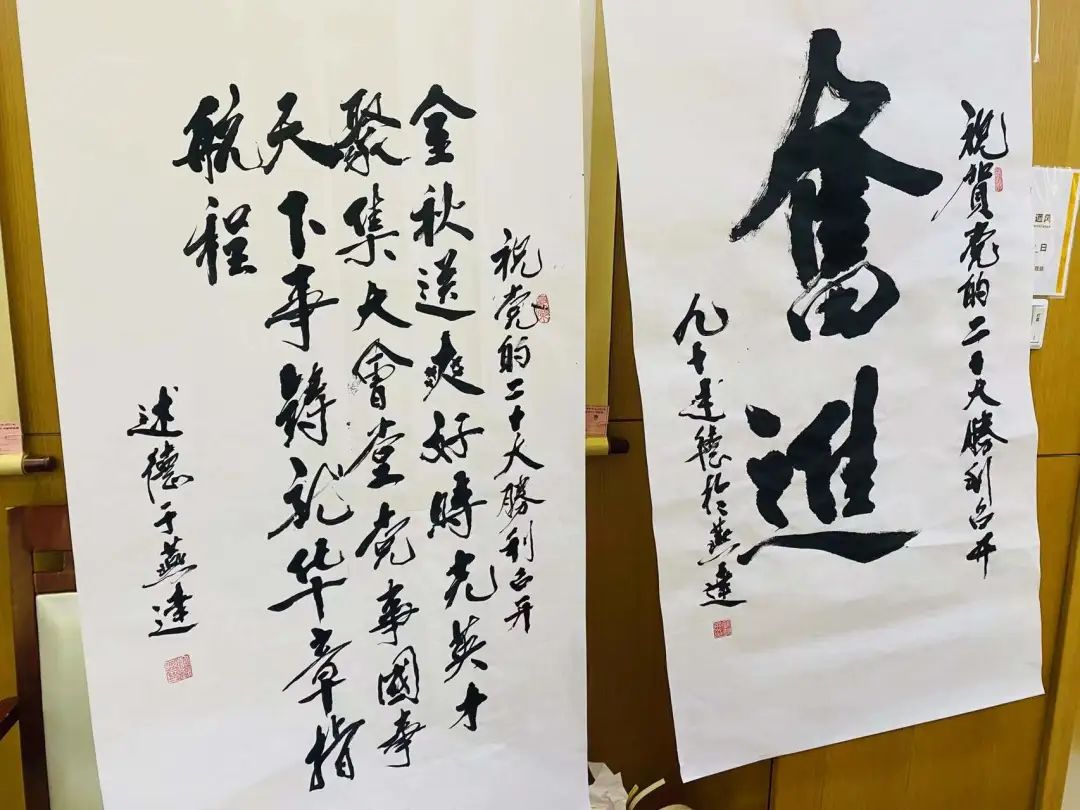 祝党的二十大勝利召开
金秋送爽好時光英才
聚集大會堂党事國事
天下事铸就华章指
航程
述德于燕達
祝賀党的二十大勝利召开
奮進
九十述德於燕達
通风
日